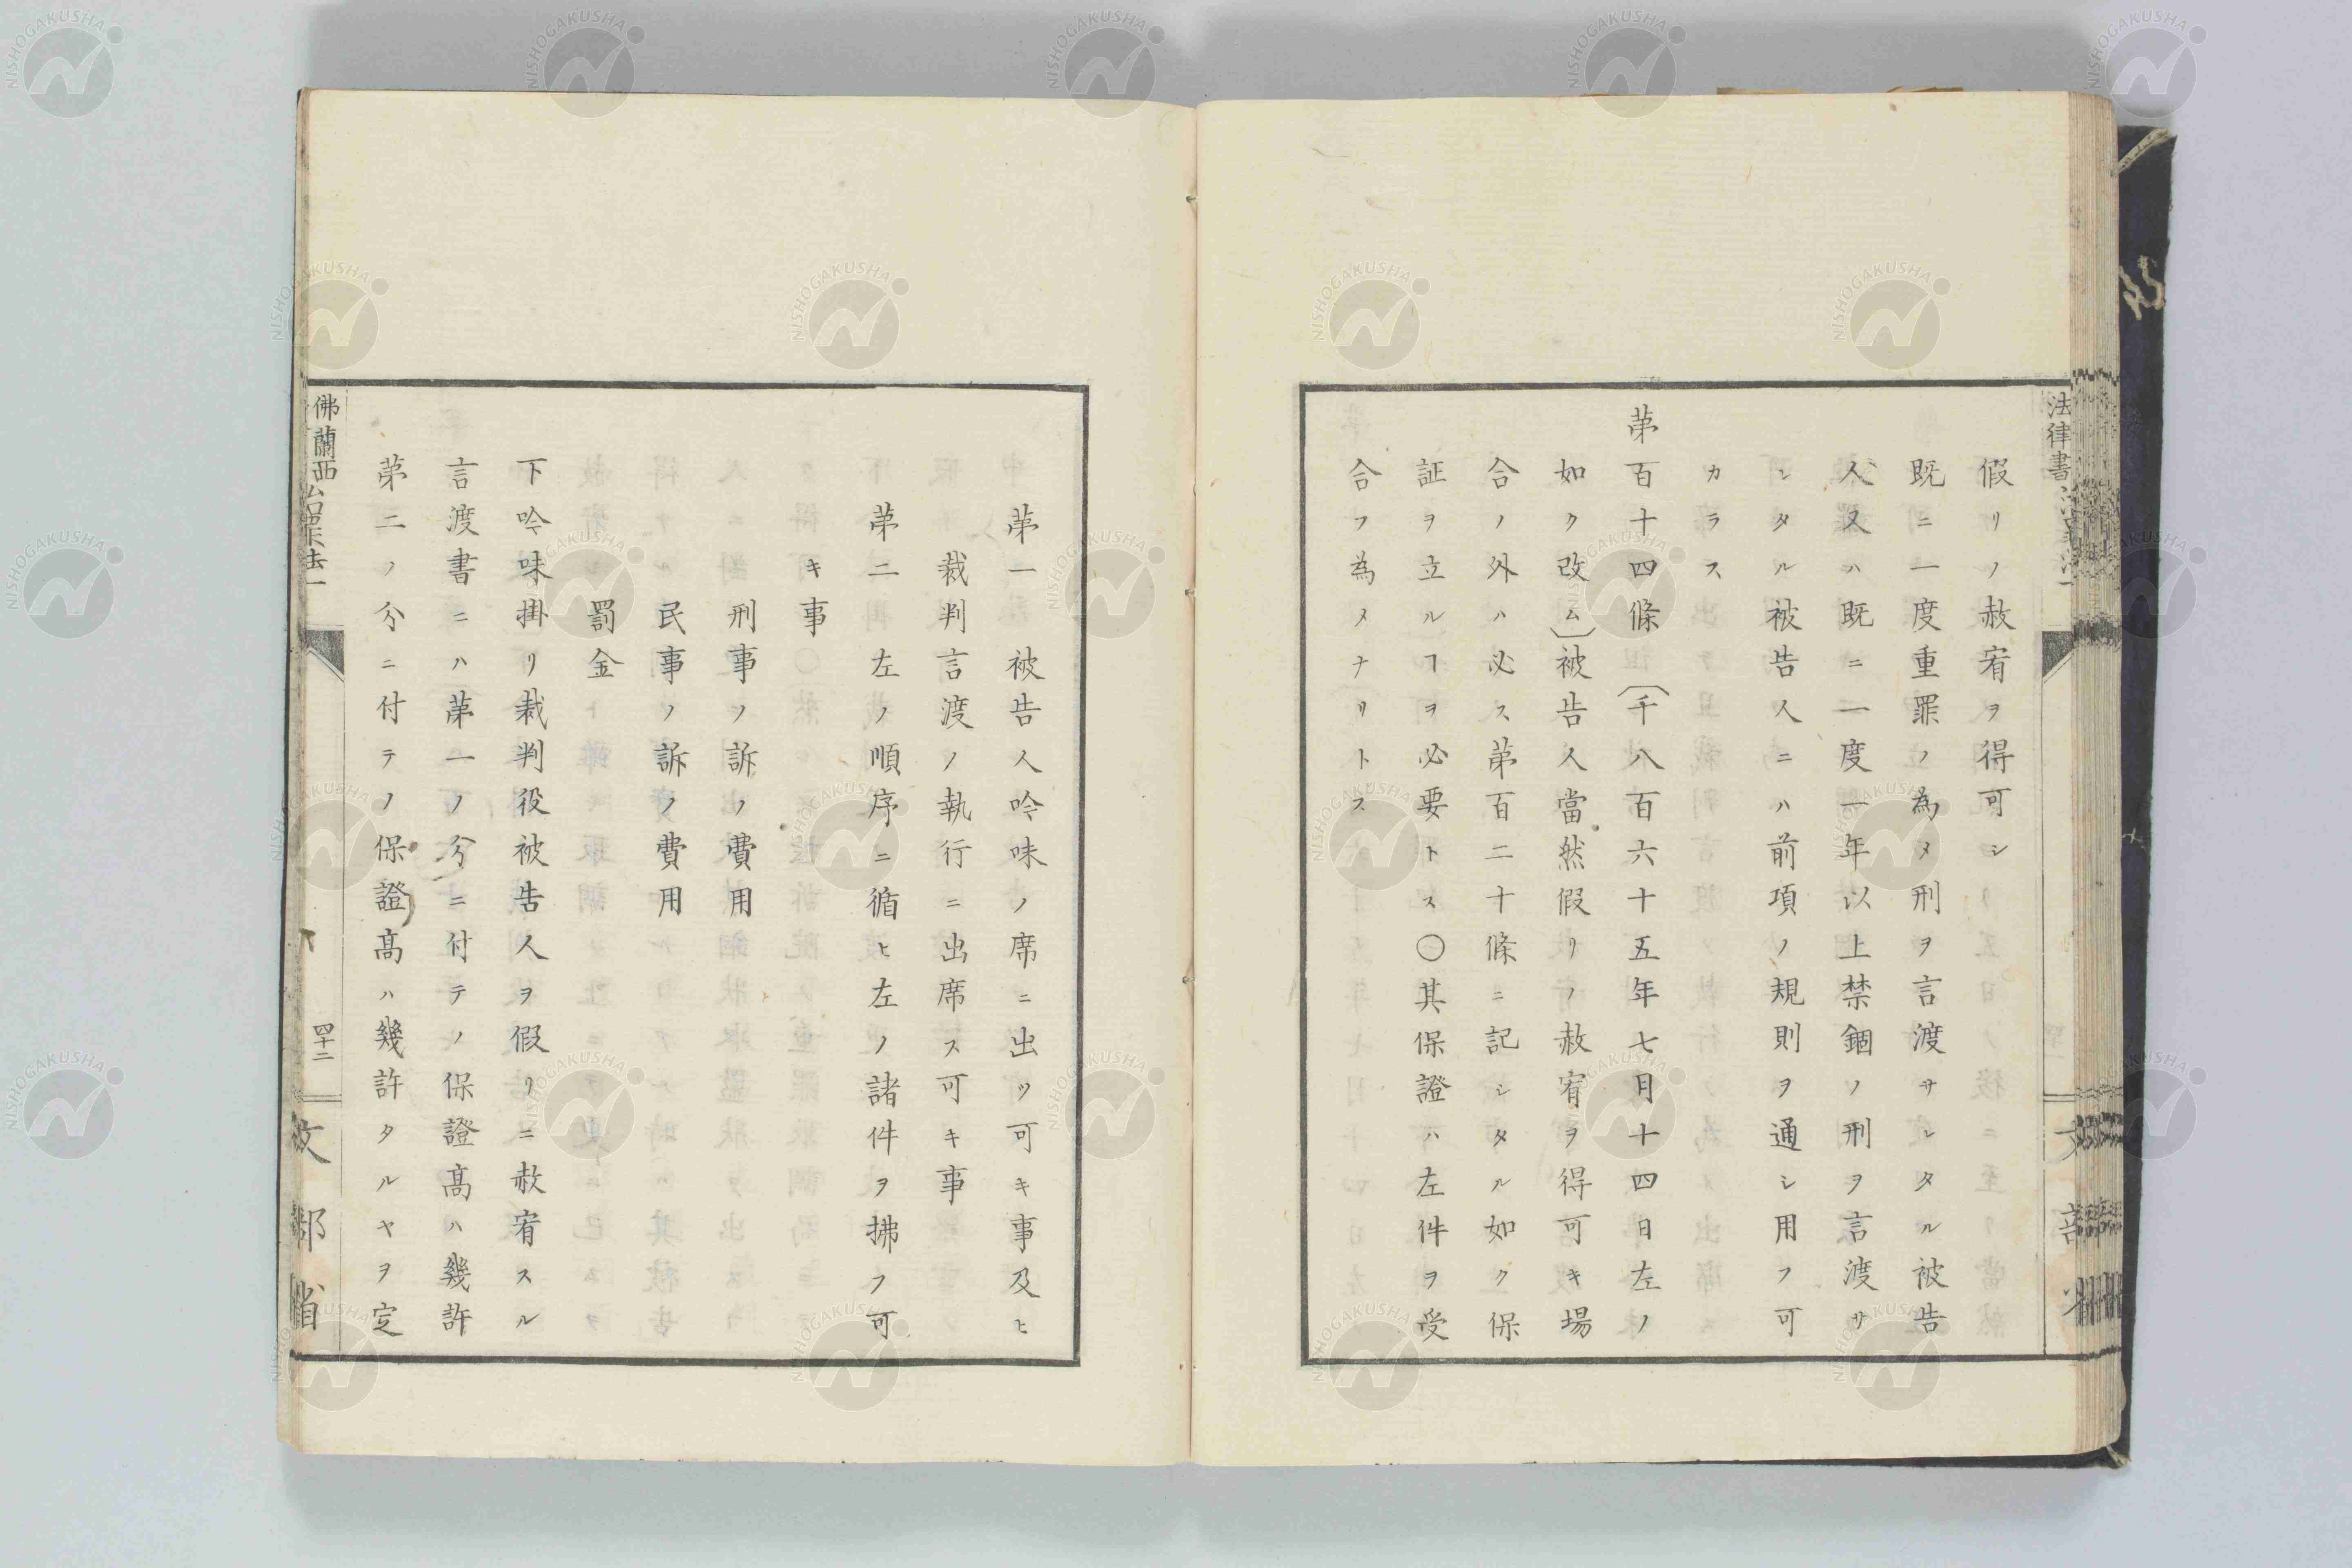 假リノ赦宥ヲ得可シ
既ニ一度重罪ノ為メ刑ヲ言渡サレタル被告
人又ハ既ニ一度一年以上禁錮ノ刑ヲ言渡サ
レタル被告人ニハ前項ノ規則ヲ通シ用フ可
カラス
第百十四條〔千八百六十五年七月十四日左ノ
如ク改ム〕被告人當然假リノ赦宥ヲ得可キ場
合ノ外ハ必ス第百二十條ニ記シタル如ク保
証ヲ立ルヿヲ必要トス○其保證ハ左件ヲ受
合フ為メナリトス
第一 被告人吟味ノ席ニ出ツ可キ事及ヒ
裁判言渡ノ執行ニ出席ス可キ事
第二 左ノ順序ニ循ヒ左ノ諸件ヲ拂フ可
キ事
刑事ノ訴ノ費用
民事ノ訴ノ費用
罰金
下吟味掛リ裁判役被告人ヲ假リニ赦宥スル
言渡書ニハ第一ノ分ニ付テノ保證高ハ幾許
第二ノ分ニ付テノ保證高ハ幾許タルヤヲ定
法律書
佛蘭西治罪法一
四十二
文部省
NISHOGAKUSHA